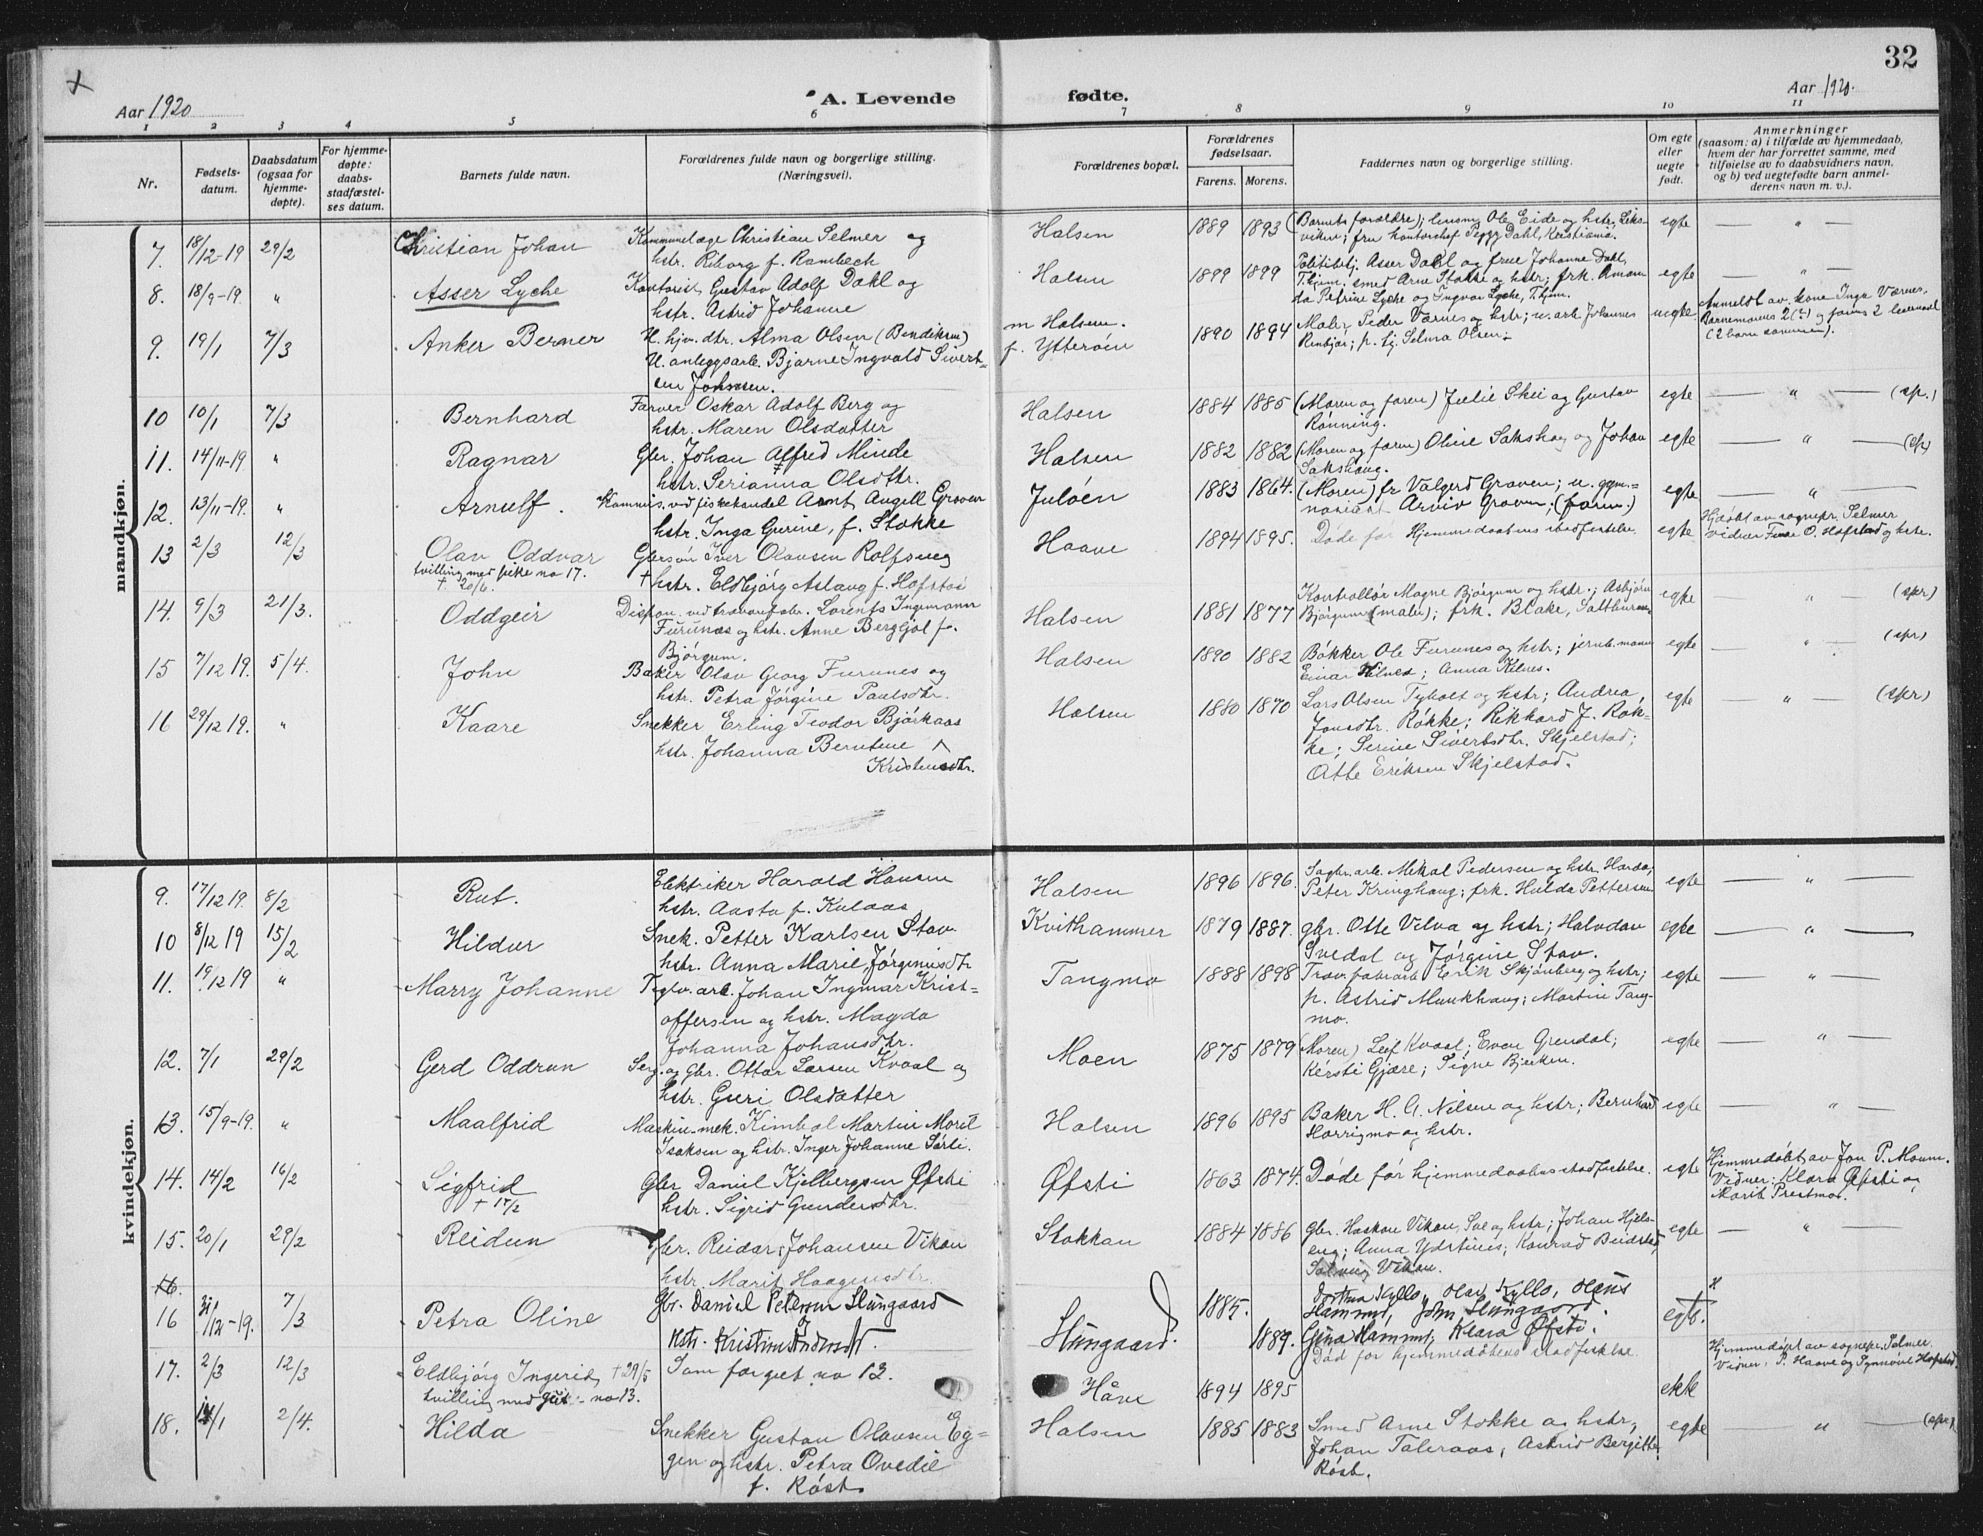 32
Aar 1920
A. Levende
fødte.
Aar 1920.
1 2 3 4 5 6 7 8 9 10 11
Nr.
Fødsels-
datum.
Daabsdatum
(ogsaa for
hjemme-
døpte).
For hjemme-
døpte:
daabs-
stadfæstel-
ses datum.
Barnets fulde navn.
Forældrenes fulde navn og borgerlige stilling.
(Næringsvei).
Forældrenes bopæl.
Forældrenes
fødselsaar.
Farens. Morens.
Faddernes navn og borgerlige stilling.
Om egte
eller
uegte
født.
Anmerkninger
(saasom: a) i tilfælde av hjemmedaab,
hvem der har forrettet samme, med
tilføielse av to daabsvidners navn,
og b) ved uegtefødte barn anmel-
derens navn m. v.).
mandkjøn.
7. 18/12-19 29/2 Christian Johan
Kommunelæge Christian Selmer og
hstr. Riborg f. Rambech
Halsen 1889 1893
(Barnets forældre); lensm. Ole Eide og hstr. Leks-
viken; fru kontorchef Peggy Dahl, Kristiania.
egte — " —
8. 18/9-19. " Asser Lyche
Kontorist Gustav Adolf Dahl og
hstr. Astrid Johanne
Halsen 1899 1899
Politibtj. Asser Dahl og frue Johanne Dahl,
T.hjem. smed Arne Stokke og hstr; frk. Aman-
da Petrine Lyche og Ingvar Lyche, T.hjem.
egte — " —
9. 19/1 7/3 Anker Berner
U. hjv. dtr. Alma Olsen (Bendiksen)
U. anleggsarb. Bjarne Ingvald Sivert-
sen Johnsen.
m Halsen.
f. Ytterøen
1890 1894
Maler Peder Værnes og hstr; u. arb. Johannes
Renbjør; p. tj. Selma Olsen.
uegte
Anmeldt av kone Inga Værnes.
Barnemorens 2 (-) og farens 2 leiermaal
(2 barn sammen).
10 10/1 7/3 Bernhard
Farver Oskar Adolf Berg og
hstr. Maren Olsdatter
Halsen 1884 1885
(Moren og faren) Julie Skei og Gustav
Rønning.
egte — " — (spr.)
11. 14/11-19 " Ragnar
Gbr. Johan Alfred Minde
hstr. Serianna Olsdtr.
Halsen 1882 1882
(Moren og faren) Oline Sakshaug og Johan
Sakshaug.
egte — " — (spr)
12. 13/11-19. " Arnulf.
Kommis. ved fiskehandel Arnt Angell Graven
hstr. Inga Gurine, f. Stokke
Juløen 1883 1864.
(Moren) fr Valgerd Graven; u. gym-
nasiast Arviv Graven; (faren.)
egte — " —
13 2/3 12/3 Olav Oddvar
tvilling med pike no 17.
+ 20/6.
Gbrsøn Iver Olausen Rolfsneg
+ hstr. Eldbjørg Aslaug f. Hofstad
Haave 1894 1895.
Døde før Hjemmedaabens stadfestelse.
egte
Hjdøbt av sogepr. Selmer
Vidner Finne O. Hofstad og hstr.
14. 9/3 21/3. Oddgeir
Dispon. ved travarefabr. Lorents Ingemann
Furunes og hstr. Anne Bergljot f.
Bjørgum.
Halsen 1881 1877
Kontrollør Magne Bjørgum og hstr.; Asbjørn
Bjørgum (maler); frk. Blake, Saltburnen
egte — " — (spr)
15 7/12 19. 5/4. John
Baker Olav Georg Furunes og
hstr. Petra Jørgine Paulsdtr.
Halsen 1890 1882
Bøkker Ole Furunes og hstr; jernb.mann
Einar Hilnes; Anna Kilnes.
egte — " — (spr)
16 29/12 19. " Kaare
Snekker Erling Teodor Bjørkaas
hstr. Johanna Berntine ^
Kristensdtr.
Halsen 1880 1870
Lars Olsen Tybolt og hstr; Andrea
Jonsdtr. Røkke; Rikkard J. Røk-
ke; Serine Sivertsdtr. Skjelstad;
Otte Eriksen Skjelstad.
egte — " — (spr)
kvindekjøn.
9. 17/12 19. 8/2 Rut.
Elektriker Harald Hansen
hstr. Aasta f. Kulaas
Halsen 1896 1896.
Sagbr.arb. Mikal Pedersen og hstr. Harda;
Peter Kringhaug; frk. Hulda Pettersen
egte — " —
10 8/12 19 15/2 Hildur
Snek. Petter Karlsen Stav
hstr. Anna Marie Jørginusdtr
Kvithammer 1879 1887.
gbr. Otte Vilva og hstr; Halvdan
Svedal og Jørgine Stav.
egte — " —
11. 19/12 19 " Marry Johanne
Teglv. arb. Johan Ingmar Krist-
offersen og hstr. Magda
Johanna Johansdtr.
Tangmo 1888 1898
Trav.fabrarb Erik Skjønberg og hstr;
p. Astrid Munkhaug; Martin Tang-
mo.
egte — " —
12. 7/1 29/2 Gerd Oddrun
Serg. og Gbr. Ottar Larsen Kvaal og
hstr. Guri Olsdatter
Moen 1875 1879
(Moren) Leif Kvaal; Even Grendal;
Kersti Gjære; Signe Bjerken.
egte — " —
13. 15/9-19. " Maalfrid
Maskin-mek. Kimbal Martin Moril
Isaksen og hstr. Inger Johanne Sørli.
Halsen 1896 1895
Baker H. A. Nilsen og hstr; Bernhard
Horrigmo og hstr.
egte — " —
14. 14/2 16/2 Sigfrid
+ 17/2
Gbr Daniel Kjelbergsen Øfsti
hstr. Sigrid Gundersdtr.
Øfsti 1863 1874.
Døde før hjemmedaabens stadfestelse.
egte
Hjemmedøbt av Jon P. Moum.
Vidner: Klara Øfsti og
Marit Prestmo.
15. 20/1 29/2 Reidun
Gbr. Reidar Johansen Vikan
hstr. Marit Haagensdtr.
Stokkan 1884 1886
gbr. Haakon Vikan, Sve og hstr; Johan Hjels-
eng; Anna Ydstines; Konrad Beidstad,
Solveig Vikan.
egte — " —
16.
16 31/12-19. 7/3 Petra Oline
Gbr. Daniel Peterson Slungaard
og
hstr. Kristine Andersdtr.
Slungaard. 1885. 1889.
Dortea Kyllo, Olav Kyllo, Olaus
Hammer, John Slungaard.
Gjina Hammer, Klara Øfsti.
egte. "
17. 2/3 12/3 Eldbjørg Ingerid + 29/5
tvilling med gut - no 13.
Som farget no 13.
Håve 1894 1895
Død før hjemmedøbens stadfestelse.
ekte
Hjemmedøpt av sogepr. Selmer
Vidner, P. Haave og Synnøve Hofstad
18. 14/1 2/4. Hilda
Snekker Gustav Olausen Eg-
gen og hstr. Petra Ovedie
f. Røst
Halsen 1885 1883
Smed Arne Stokke og hstr;
Johan Taleraas, Astrid Bergitte
Røst.
egte " — (spr)